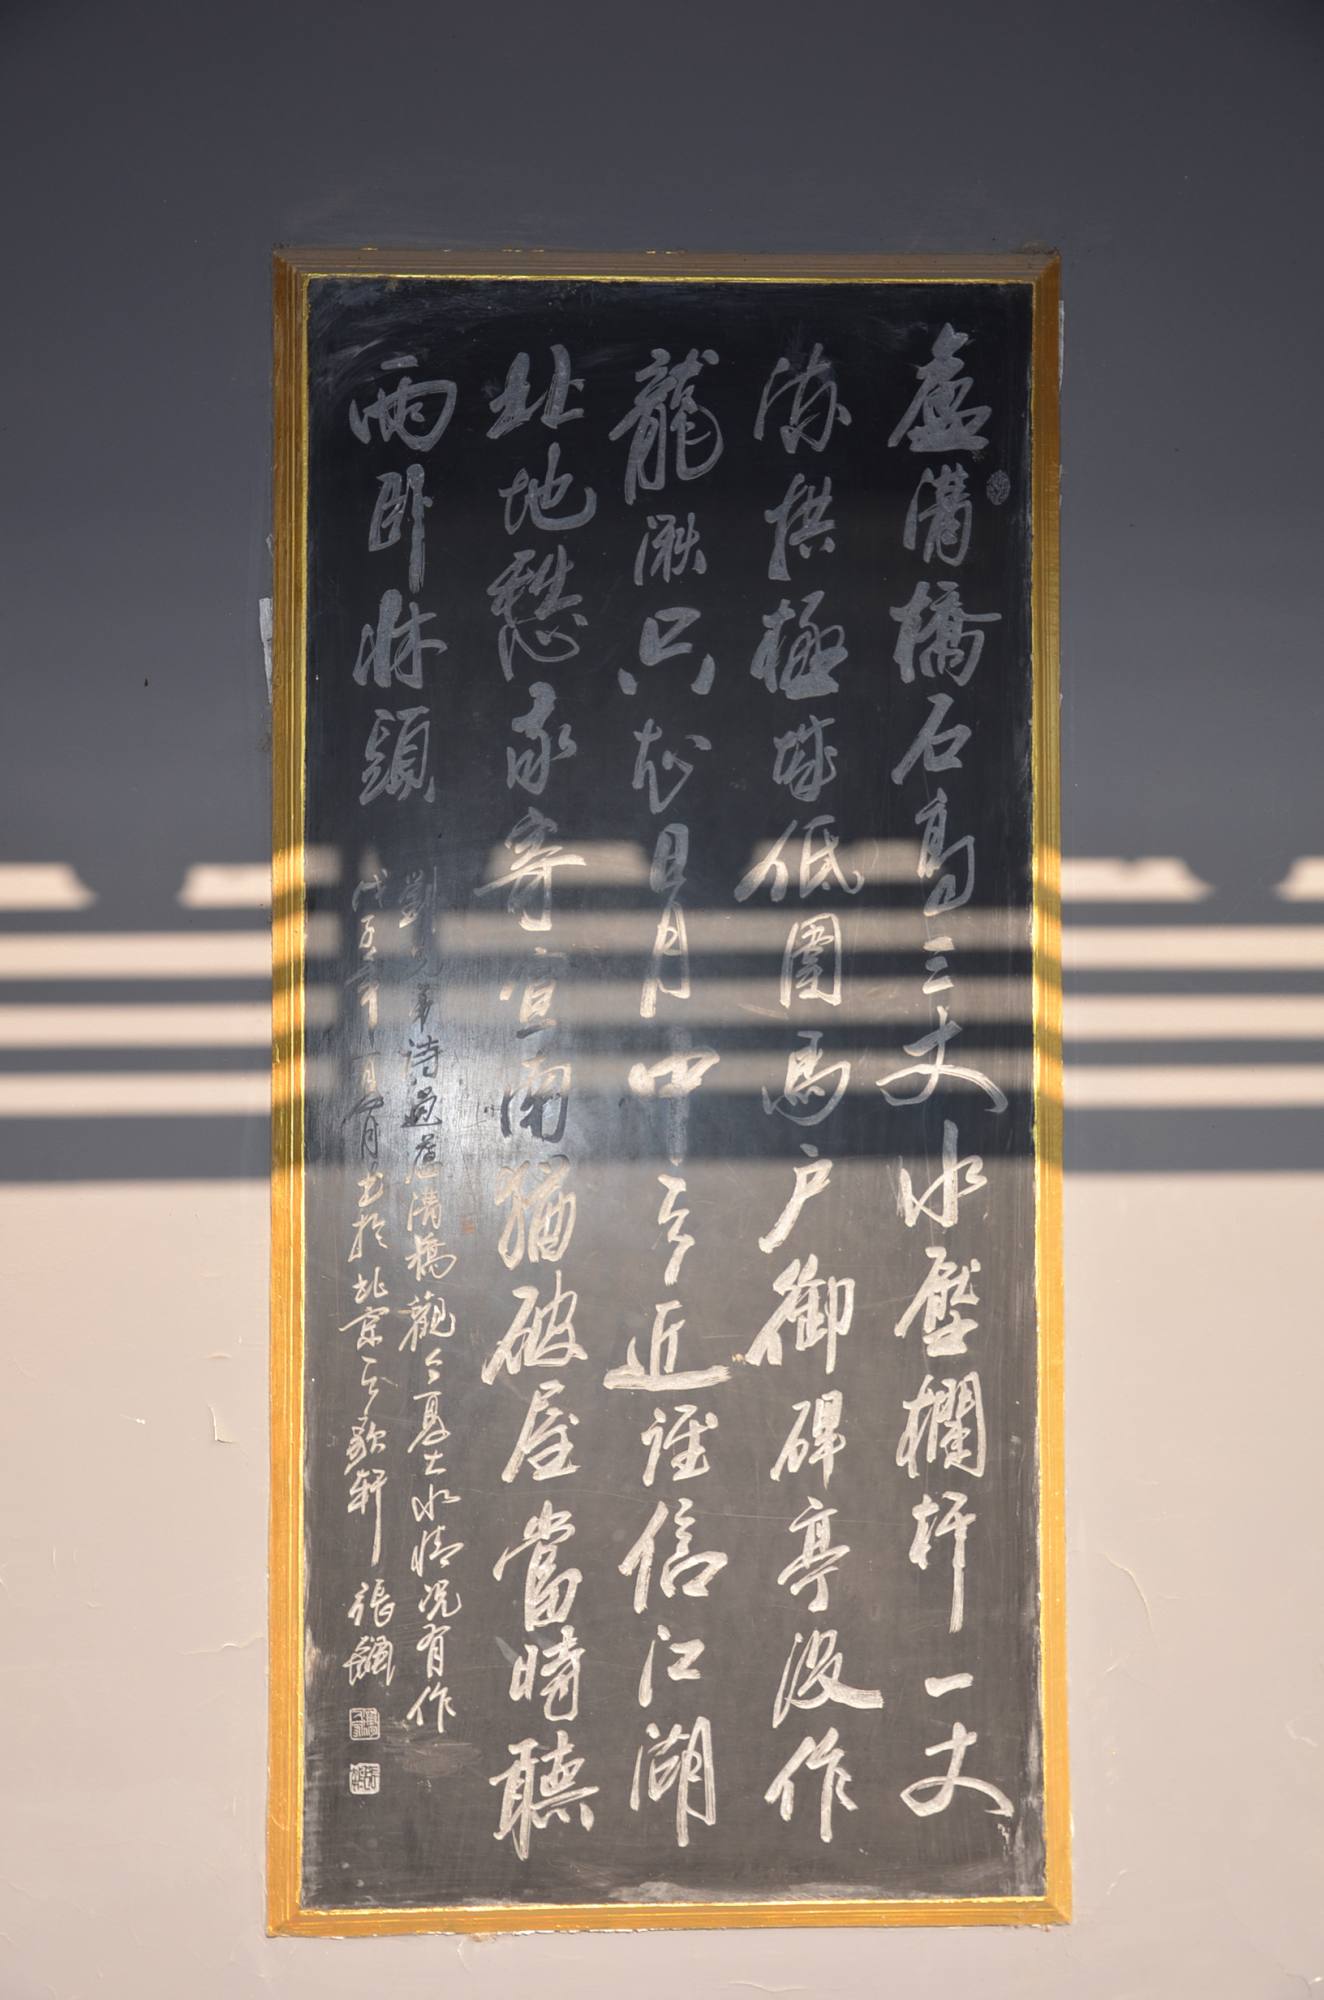 盧溝橋石高三丈水壓欄杆一丈
流拱極城低圍馬戶御碑亭沒作
龍湫只日月中天近誰信江湖
北地愁我寄宣南猶破屋當時聽
雨卧牀頭
劉光第詩過盧溝橋觀今夏大水情況有作
戊子年月書於北京天歌軒張